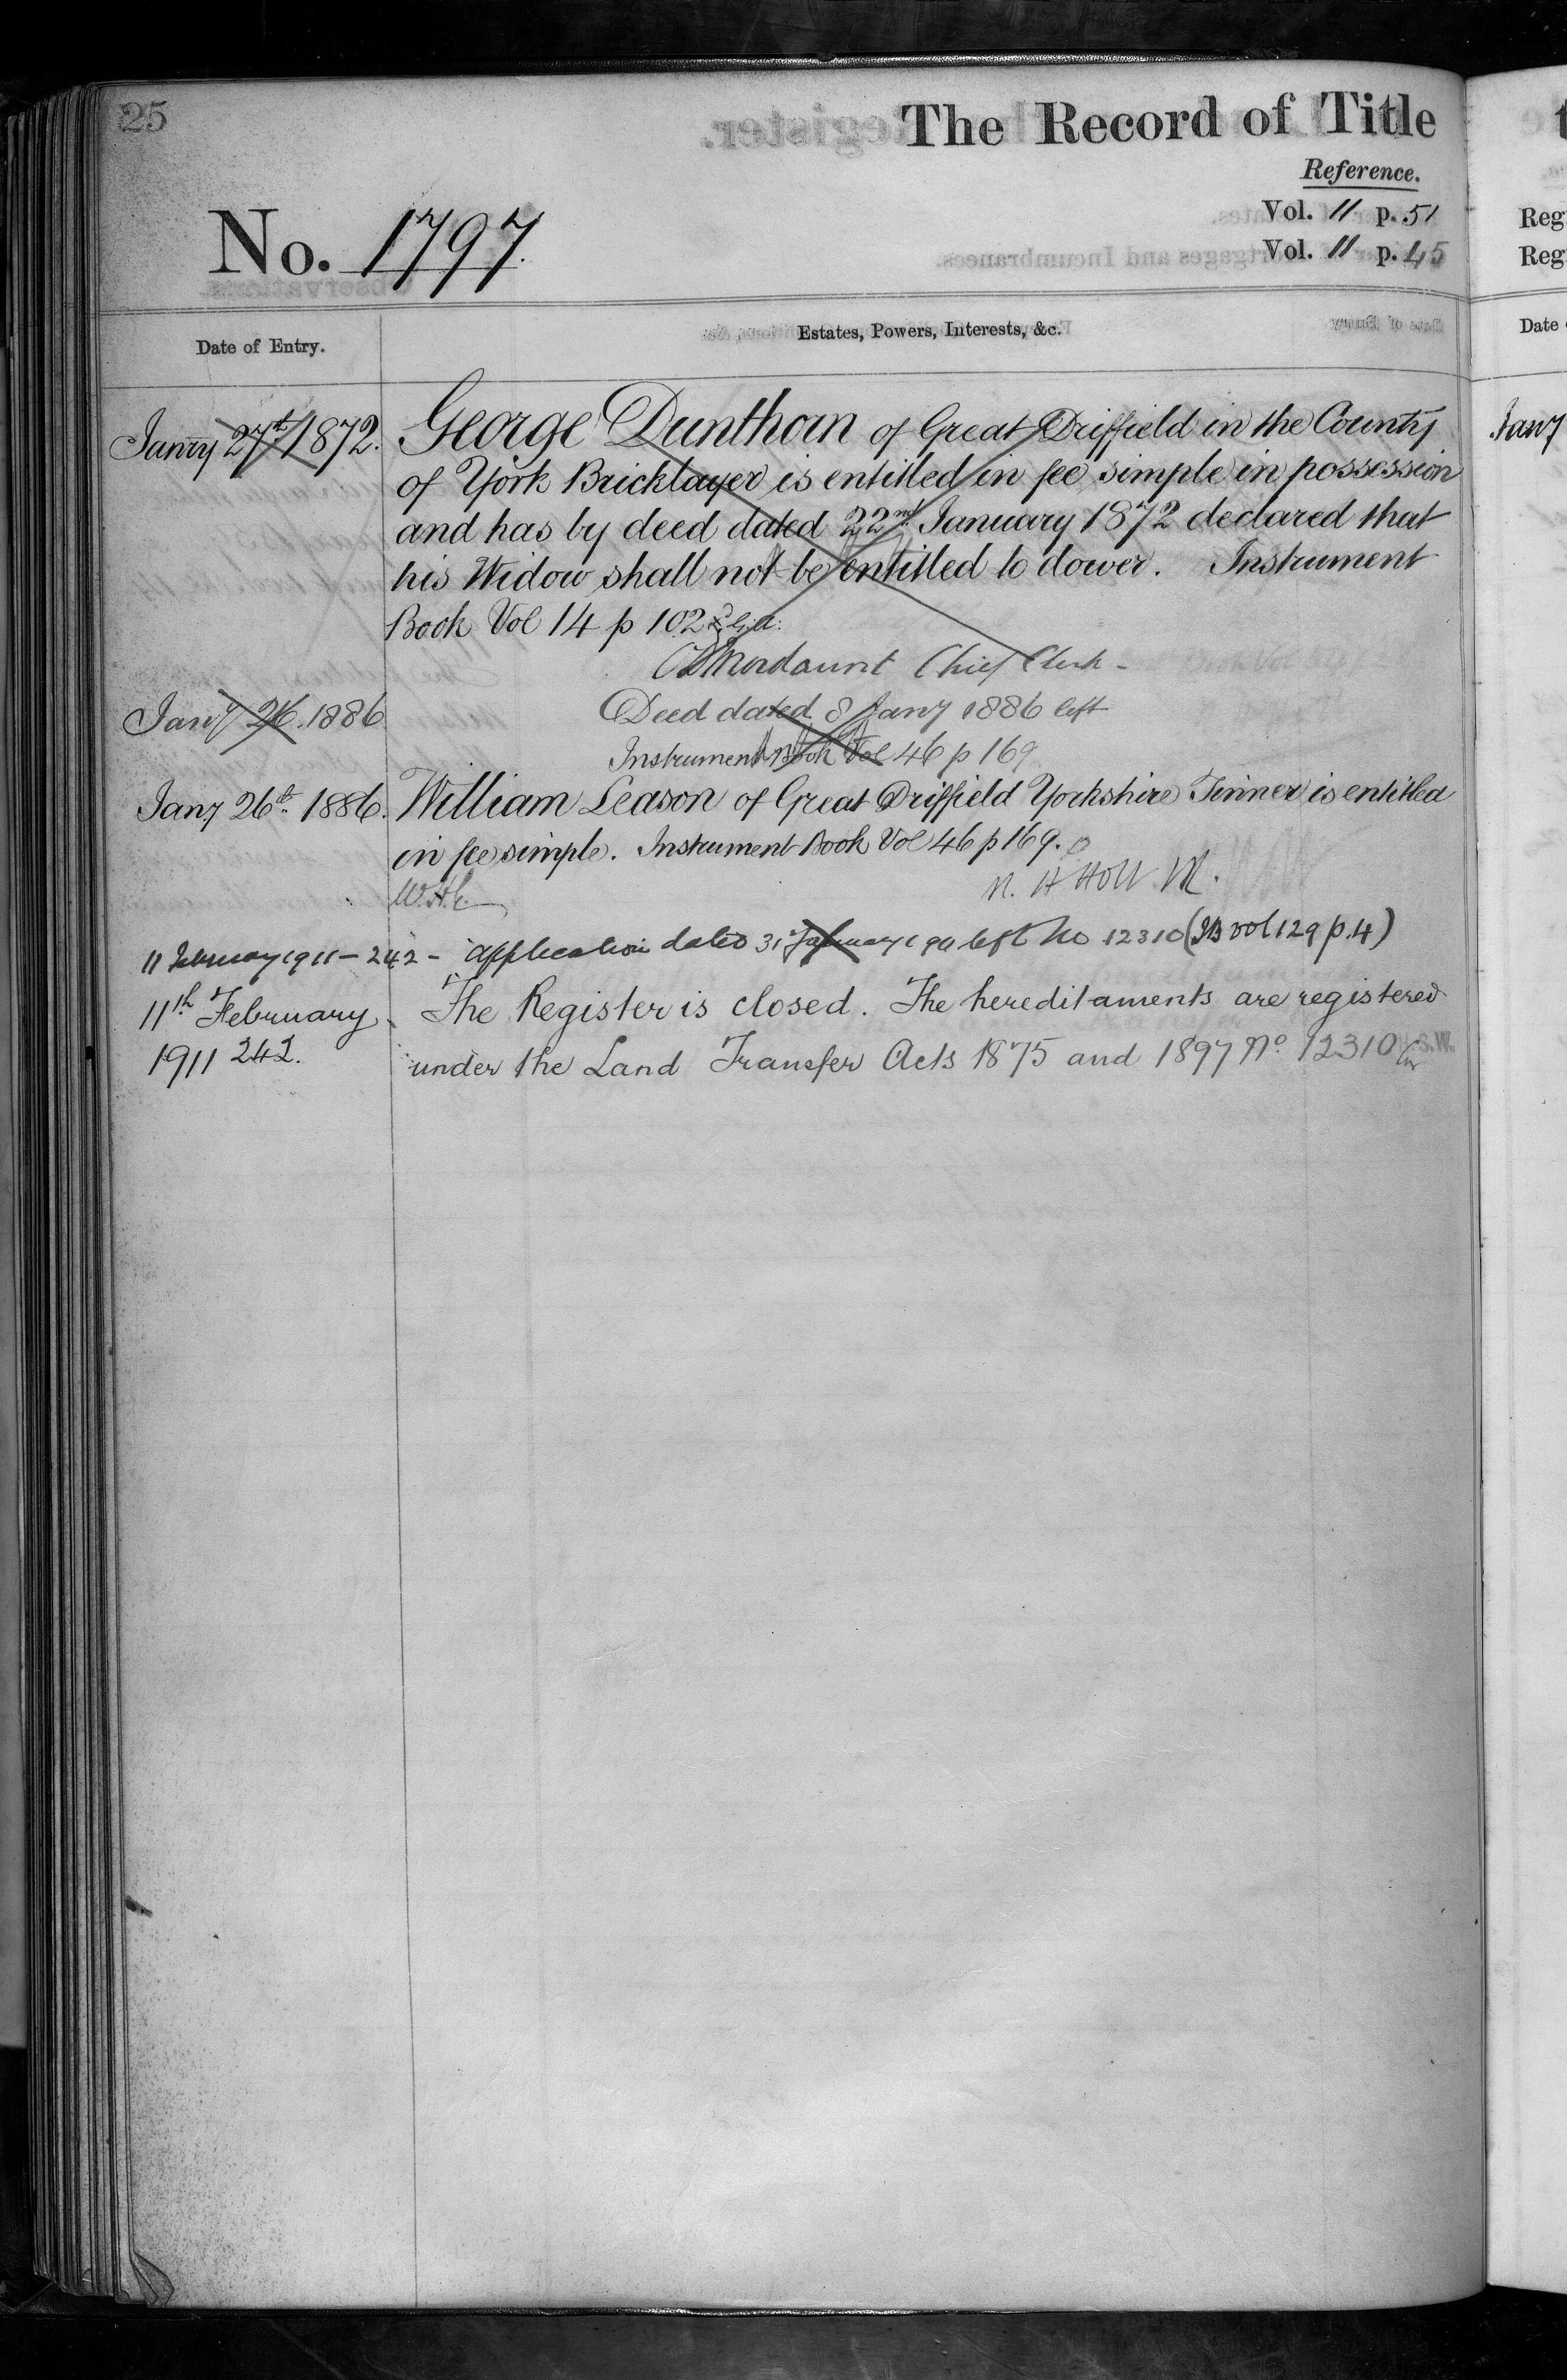 25
The Record of Title
Reference.
Vol. 11 p. 51
Vol. 11 p. 45
No. 1797.
Date of Entry.
Estates, Powers, Interests, &c.
Janry 27th 1872.
George Dunthorn of Great Driffield in the County
of York Bricklayer is entitled in fee simple in possession
and has by deed dated 22nd January 1872 declared that
his Widow shall not be entitled to dower. Instrument
Book Vol 14 p 102
Mordaunt Chief Clerk
Jany 26. 1886
Deed dated 8 Jany 1886 left
Instrument Book Vol 46 p 169
Jany 26th 1886.
William Leason of Great Driffield Yorkshire Tinner is entitled
in fee simple. Instrument Book Vol 46 p 169.
11 February 1911 - 242 - application dated 31st January 1911 left No 12310 (IB vol 129 p. 4)
11th February
1911 242.
The Register is closed. The hereditaments are registered
under the Land Transfer Acts 1875 and 1897 No 12310
Reg
Reg
Date
Jany